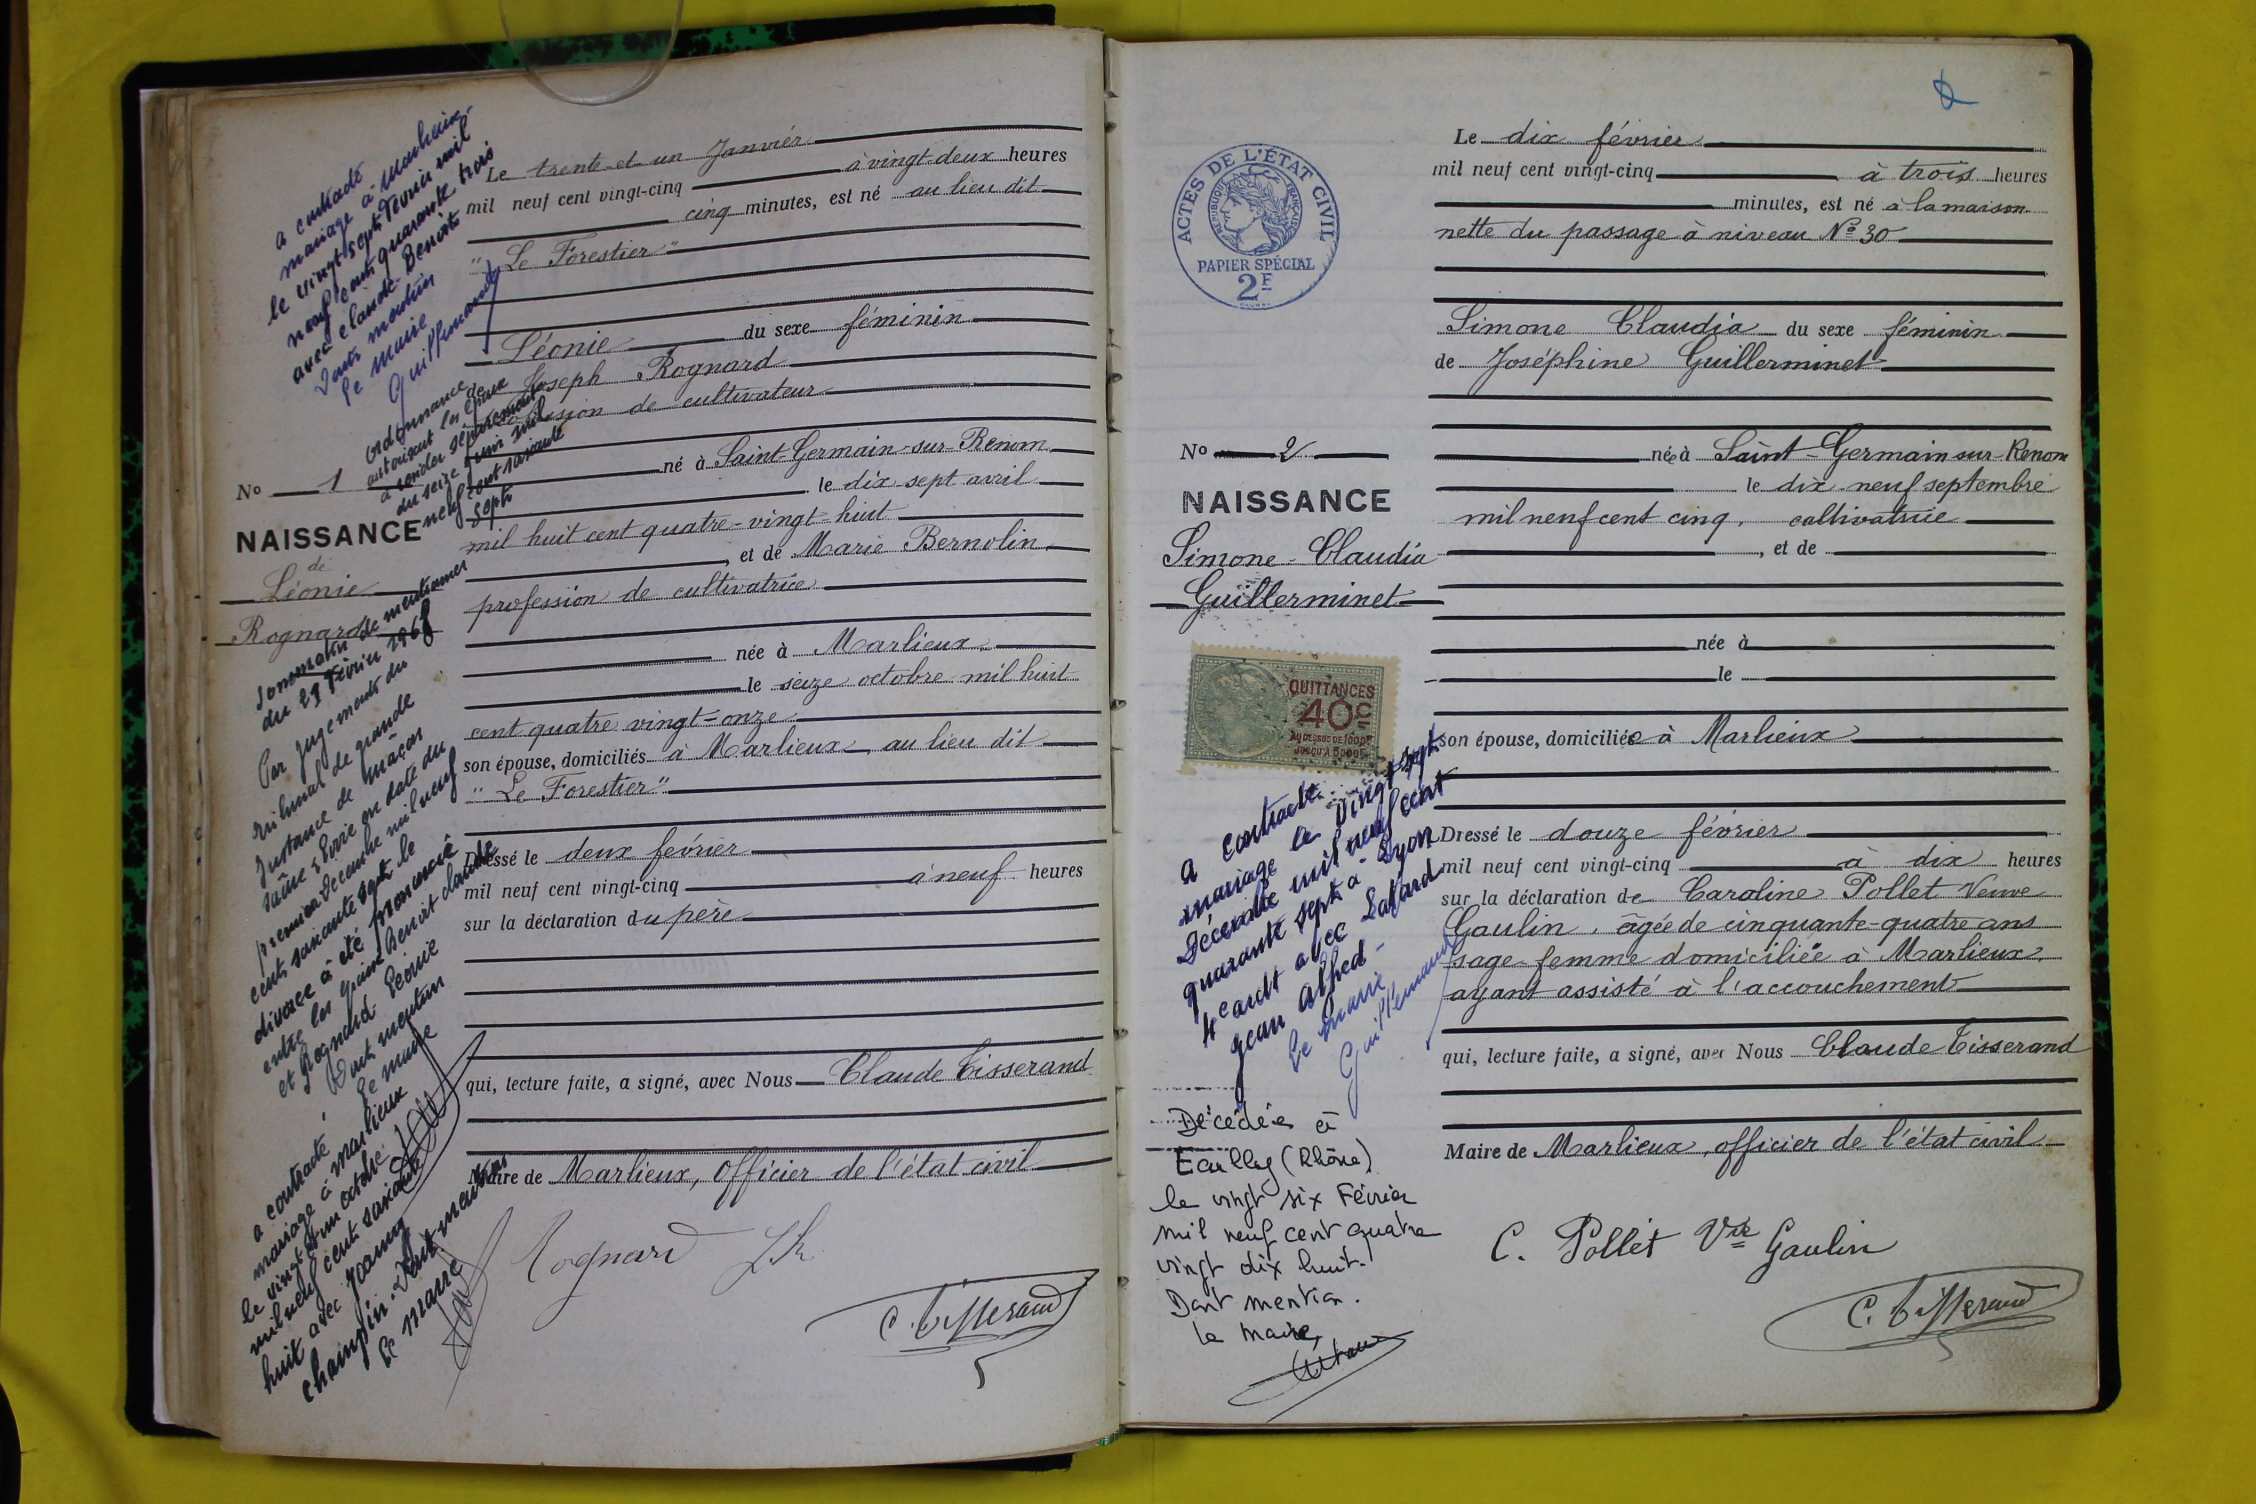 a contracté
mariage à Marlieux
le vingt sept février mil
neuf cent quarante trois
avec Claude Benoit
Dont mention
Le maire
Guillemaud
ordonnance de
autorisant les époux
à résider séparément
du seize juin mil
neuf cent soixante
sept
No 1
NAISSANCE
de
Léonie
Rognard
Sommation de mentionner
du 29 février 1968
Par jugement du
tribunal de grande
Instance de Mâcon
Saône & Loire en date du
premier décembre mil neuf
cent soixante sept le
divorce a été prononcé
entre les époux Benoit Claude
et Rognard Léonie
Dont mention
Le maire
a contracté
mariage à Marlieux
le vingt et un octobre
mil neuf cent soixante
huit avec Joanny
Champin. Dont mention
Le Maire
Le trente-et-un Janvier
mil neuf cent vingt-cinq à vingt deux heures
cinq minutes, est né au lieu dit
"Le Forestier"
Léonie du sexe féminin
de Joseph Rognard
profession de cultivateur
né à Saint-Germain-sur-Renom
le dix-sept avril
mil huit cent quatre-vingt-huit
, et de Marie Bernolin
profession de cultivatrice
née à Marlieux
le seize octobre mil huit
cent quatre vingt-onze
son épouse, domiciliés à Marlieux, au lieu dit
"Le Forestier"
Dressé le deux février
mil neuf cent vingt-cinq à neuf heures
sur la déclaration du père
qui, lecture faite, a signé, avec Nous Claude Tisserand
Maire de Marlieux, officier de l'état civil
Rognard
C. Tisserand
2
ACTES DE L'ÉTAT CIVIL
RÉPUBLIQUE FRANÇAISE
PAPIER SPÉCIAL
2F
No 2
NAISSANCE
Simone-Claudia
Guillerminet
QUITTANCES
40c
AU DESSUS DE 1000F
JUSQU'A 3000F
a contracté
mariage le vingt sept
Décembre mil neuf cent
quarante sept à Lyon
4e cardt avec Lafard
Jean Alfred -
Le Maire
Guillemaud
Décédée à
Ecully (Rhône)
le vingt six Février
mil neuf cent quatre
vingt dix huit.
Dont mention.
le maire,
Le dix février
mil neuf cent vingt-cinq à trois heures
minutes, est né à la maison
nette du passage à niveau No 30
Simone Claudia du sexe féminin
de Joséphine Guillerminet
née à Saint-Germain sur Renom
le dix-neuf septembre
mil neuf cent cinq, cultivatrice
, et de
née à
le
son épouse, domiciliée à Marlieux
Dressé le douze février
mil neuf cent vingt-cinq à dix heures
sur la déclaration de Caroline Pollet Veuve
Gaulin, âgée de cinquante-quatre ans
sage-femme domiciliée à Marlieux
ayant assisté à l'accouchement
qui, lecture faite, a signé, avec Nous Claude Tisserand
Maire de Marlieux, officier de l'état civil
C. Pollet Vve Gaulin
C. Tisserand